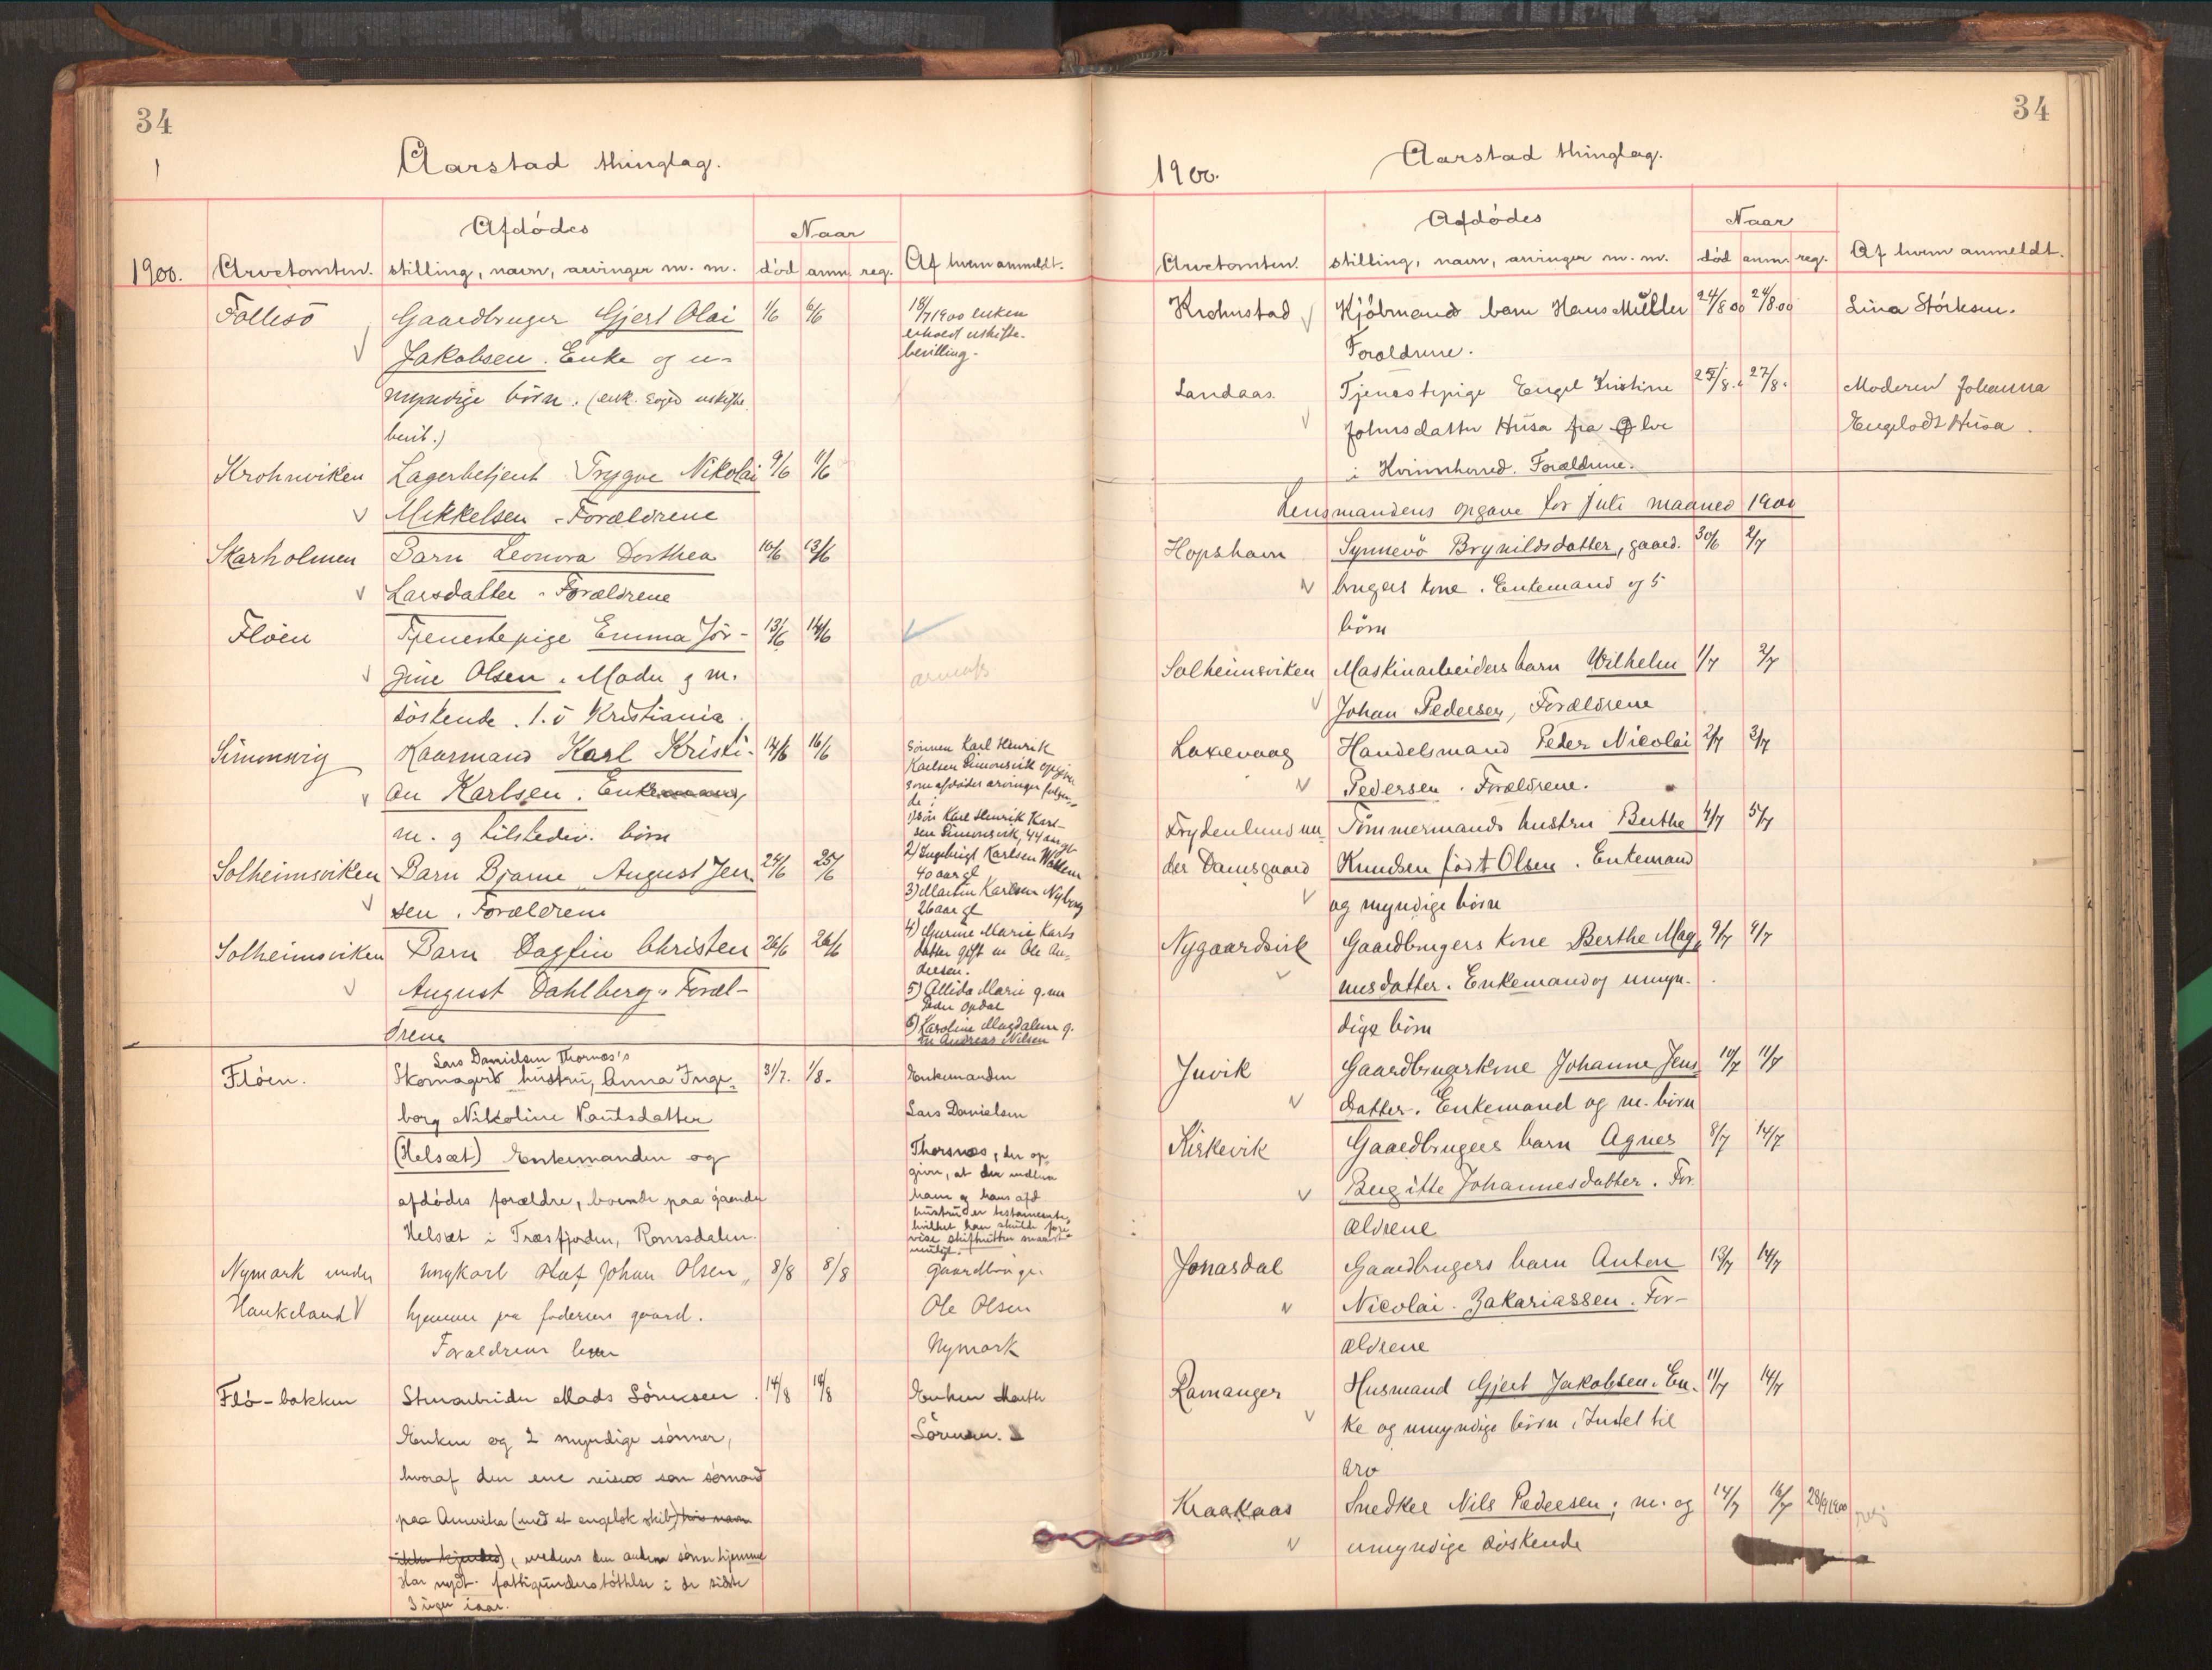 34
Aarstad thinglag.
1900.
Arvetomten.
Afdödes
stilling, navn, arvinger m. m.
Naar
död anm. reg.
Af hvem anmeldt.
Follesö Gaardbruger Gjert Olai 1/6 6/6
Jakobsen. Enke og u-
myndige börn. (enk. söger uskifte
bevil.)
18/7 1900 enken
erholdt uskifte-
bevilling.
Krohnviken Lagerbetjent Trygve Nikolai 9/6 11/6
Mikkelsen - Forældrene
Skarholmen Barn Leonora Dorthea 10/6 13/6
Larsdatter - Forældrene
Flöen Tjenestepige Emma Jör- 13/6 14/6
gine Olsen. Moder g m.
söskende. 1. i Kristiania
Simonsvig Kaarmand Karl Kristi- 14/6 16/6
an Karlsen. Enkemand,
m. g tilstedev. börn
Sönnen Karl Henrik
Karlsen Simonsvik opgiver
som afdödes arvinger følgen-
de:
1) sön Karl Henrik Karl-
sen Simonsvik, 44 aar gl
2) Ingebrigt Karlsen
40 aar gl
3) Martin Karlsen Nyborg
26 aar gl
4) Gurine Marie Karls
datter gift m Ole An-
dresen.
5) Allida Marie g. m
Peder Opdal
6) Karoline Magdalene g.
m Andreas Nilsen
Solheimsviken Barn Bjarne August Jen- 24/6 25/6
sen. Forældrene
Solheimsviken Barn Dagfin Christen 26/6 26/6
August Dahlberg. Foræl-
drene
Lars Danielsen Thornæs's
Flöen. Skomagers hustru, Anna Inge- 31/7. 1/8.
borg Nikoline Knutsdatter
(Helsæt) Enkemanden og
afdödes forældre, boende paa gaarden
Helsæt i Træsfjorden, Romsdalen.
Enkemanden
Lars Danielsen
Thorsnæs, der op-
giver, at der mellem
ham og hans afd
hustru er testamente,
hvilket han skulde fore-
vise skifteretten snarest
muligt.
Nymark under Ungkarl Olaf Johan Olsen, 8/8 8/8
Haukeland hjemme paa faderens gaard.
Forældrene lever
Gaardbruger
Ole Olsen
Nymark
Flö-bakken Stuearbeider Mads Sörensen. 14/8 14/8
Enken og 2 myndige sönner,
hvoraf den ene reiser som sömand
paa Amerika (med et engelsk skib) hvis navn
ikke kjendes), medens den anden sönn hjemme
Har nydt fattigunderstöttelse i de sidste
3 uger iaar.
Enken Marthe
Sörensen.
34
1900.
Aarstad thinglag.
Arvetomten.
Afdödes
stilling, navn, arvinger m. m.
Naar
död anm. reg.
Af hvem anmeldt.
Krohnstad Kjöbmand barn Hans Müller 24/8 00 24/8 00 Lina Störksen.
Forældrene.
Landaas. Tjenestepige Engel Kristine 25/8. 27/8. Moderen Johanna
Johnsdatter Husa fra Ølve Engelsdt Husa.
i Kvinnherred. Forældrene.
Lensmandens opgave for juli maaned 1900
Hopshavn Synnevö Brynildsdatter, gaard- 30/6 2/7
brugers kone. Enkemand og 5
börn
Solheimsviken Maskinarbeiders barn Wilhelm 1/7 2/7
Johan Pedersen, Forældrene
Laxevaag Handelsmand Peder Nicolai 2/7 3/7
Pedersen. Forældrene.
Frydenlund un- Tömmermands hustru Berthe 4/7 5/7
der Damsgaard Knudsen födt Olsen. Enkemand
og myndige börn
Nygaardsvik Gaardbrugers kone Berthe Mag- 9/7 9/7
nusdatter. Enkemand og umyn-
dige börn
Juvik Gaardbrugerkone Johanne Jens- 10/7 11/7
datter. Enkemand og m. börn
Kirkevik Gaardbrugers barn Agnes 8/7 14/7
Birgitte Johannesdatter. For-
ældrene
Jonasdal Gaardbrugers barn Anton 13/7 14/7
Nicolai Zakariassen. For-
ældrene
Ramanger Husmand Gjert Jakobsen. En- 11/7 14/7
ke og umyndige börn. Intet til
arv
Kraakaas Snedker Nils Pedersen; m. og 14/7 16/7 28/9 1900
umyndige söskende